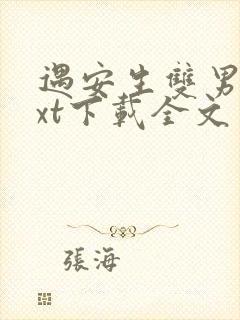 遇安生雙男
xt下載全文
張海